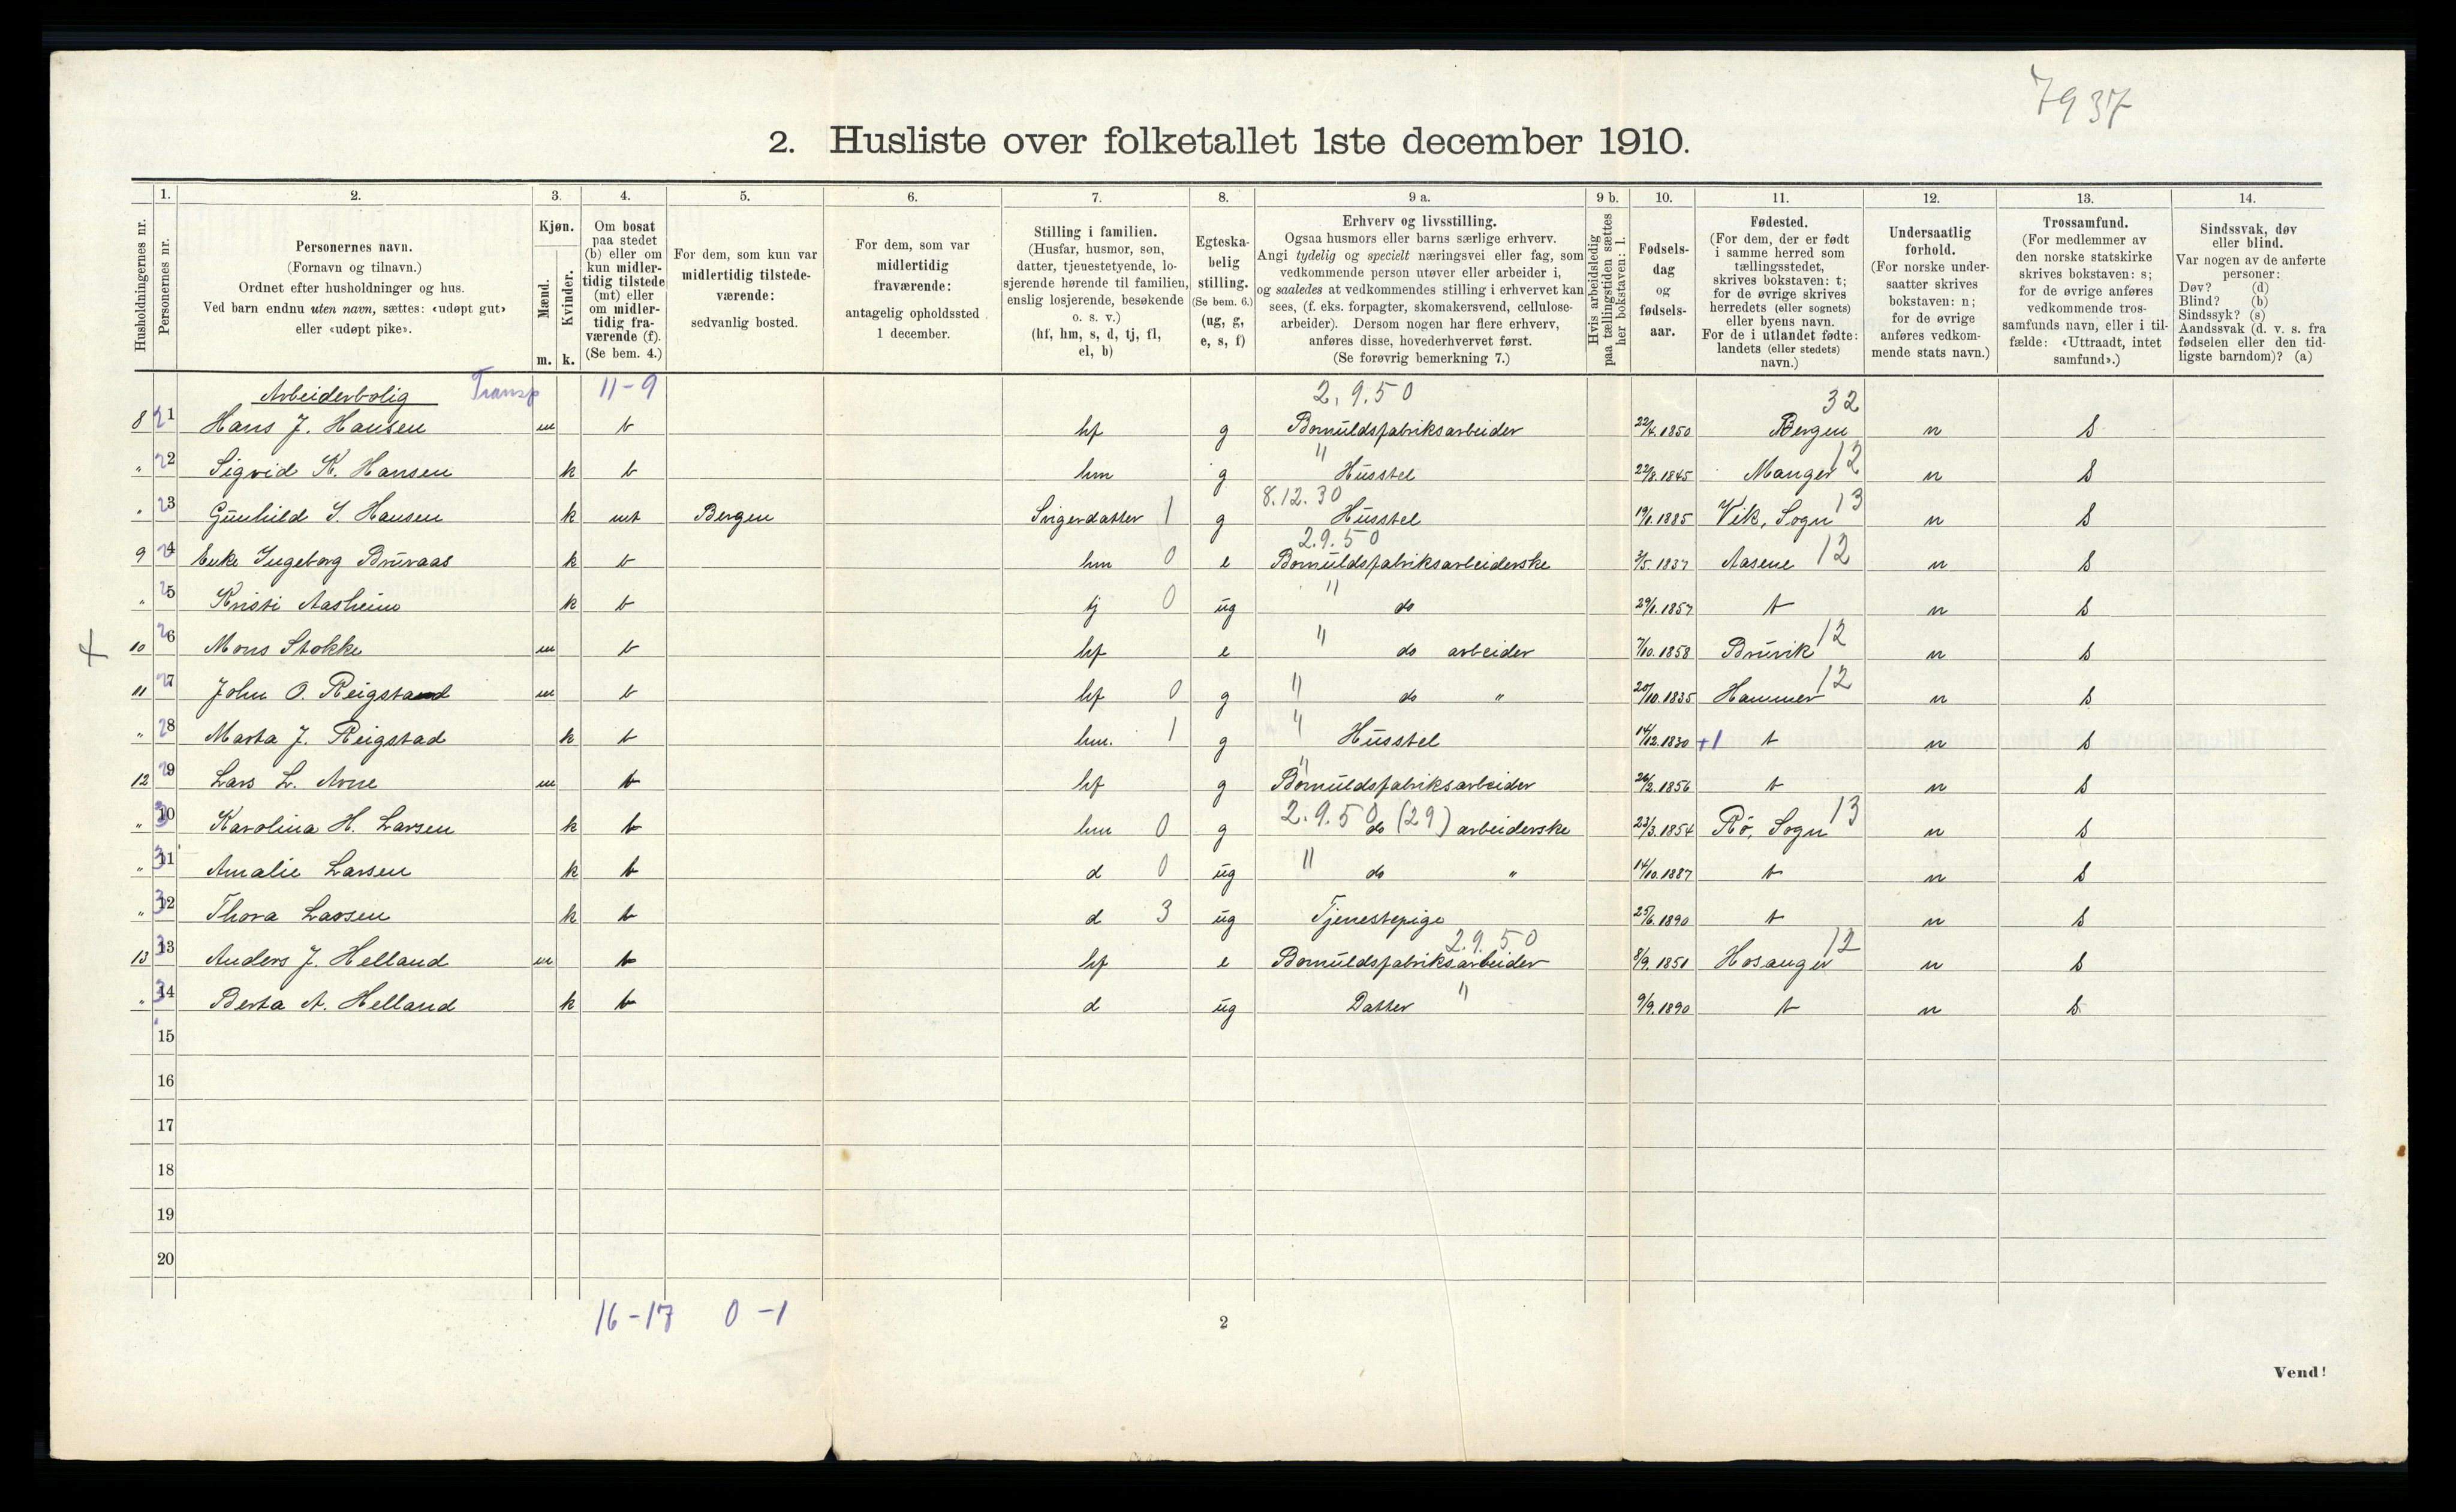 7937
2. Husliste over folketallet 1ste december 1910.
1. 2. 3. 4. 5. 6. 7. 8. 9 a. 9 b. 10. 11. 12. 13. 14.
Husholdningernes nr.
Personernes nr.
Personernes navn.
(Fornavn og tilnavn.)
Ordnet efter husholdninger og hus.
Ved barn endnu uten navn, sættes: «udøpt gut»
eller «udøpt pike».
Kjøn.
Mænd.
Kvinder.
m. k.
Om bosat
paa stedet
(b) eller om
kun midler-
tidig tilstede
(mt) eller
om midler-
tidig fra-
værende (f).
(Se bem. 4.)
For dem, som kun var
midlertidig tilstede-
værende:
sedvanlig bosted.
For dem, som var
midlertidig
fraværende:
antagelig opholdssted
1 december.
Stilling i familien.
(Husfar, husmor, søn,
datter, tjenestetyende, lo-
sjerende hørende til familien,
enslig losjerende, besøkende
o. s. v.)
(hf, hm, s, d, tj, fl,
el, b)
Egteska-
belig
stilling.
(Se bem. 6.)
(ug, g,
e, s, f)
Erhverv og livsstilling.
Ogsaa husmors eller barns særlige erhverv.
Angi tydelig og specielt næringsvei eller fag, som
vedkommende person utøver eller arbeider i,
og saaledes at vedkommendes stilling i erhvervet kan
sees, (f. eks. forpagter, skomakersvend, cellulose-
arbeider). Dersom nogen har flere erhverv,
anføres disse, hovederhvervet først.
(Se forøvrig bemerkning 7.)
Hvis arbeidsledig
paa tællingstiden sættes
her bokstaven: l.
Fødsels-
dag
og
fødsels-
aar.
Fødested.
(For dem, der er født
i samme herred som
tællingsstedet,
skrives bokstaven: t;
for de øvrige skrives
herredets (eller sognets)
eller byens navn.
For de i utlandet fødte:
landets (eller stedets)
navn.)
Undersaatlig
forhold.
(For norske under-
saatter skrives
bokstaven: n;
for de øvrige
anføres vedkom-
mende stats navn.)
Trossamfund.
(For medlemmer av
den norske statskirke
skrives bokstaven: s;
for de øvrige anføres
vedkommende tros-
samfunds navn, eller i til-
fælde: «Uttraadt, intet
samfund».)
Sindssvak, døv
eller blind.
Var nogen av de anførte
personer:
Døv? (d)
Blind? (b)
Sindssyk? (s)
Aandssvak (d. v. s. fra
fødselen eller den tid-
ligste barndom)? (a)
Arbeiderbolig Transp 11-9 2.9.50 32
8 21 Hans J. Hansen m b hf g Bomuldsfabriksarbeider 22/4.1850 Bergen n s
" 22 Sigvid K. Hansen k b hm g " Husstel 22/8.1845 Manger 12 n s
" 23 Gunhild S. Hansen k mt Bergen Svigerdatter 1 g 8.12.30 Husstel 19/1.1885 Vik, Sogn 13 n s
9 24 Enke Ingeborg Bruraas k b hm 0 e 2.9.50 Bomuldsfabriksarbeiderske 3/5.1837 Aasene 12 n s
" 25 Kristi Aasheim k b tj 0 ug " do 29/1.1857 t n s
10 26 Mons Stokke m b hf e " do arbeider 7/10.1858 Bruvik 12 n s
11 27 John O. Reigstad m b hf 0 g " do " 20/10.1835 Hammer 12 n s
" 28 Marta J. Reigstad k b hm. 1 g " Husstel 14/12.1830 +1 t n s
12 29 Lars L. Arne m b hf g " Bomuldsfabriksarbeider 26/2.1856 t n s
" 30 Karolina H. Larsen k b hm 0 g 2.9.50 do (29) arbeiderske 23/3.1854 Rø, Sogn 13 n s
" 31 Amalie Larsen k b d 0 ug " do " 14/10.1887 t n s
" 32 Thora Larsen k b d 3 ug Tjenestepige 25/6.1890 t n s
13 33 Anders J. Helland m b hf e 2.9.50 Bomuldsfabriksarbeider 8/9.1851 Hosanger 12 n s
" 34 Berta A. Helland k b d ug Datter " 9/9.1890 t n s
15
16
17
18
19
20
16-17 0-1
2
Vend!